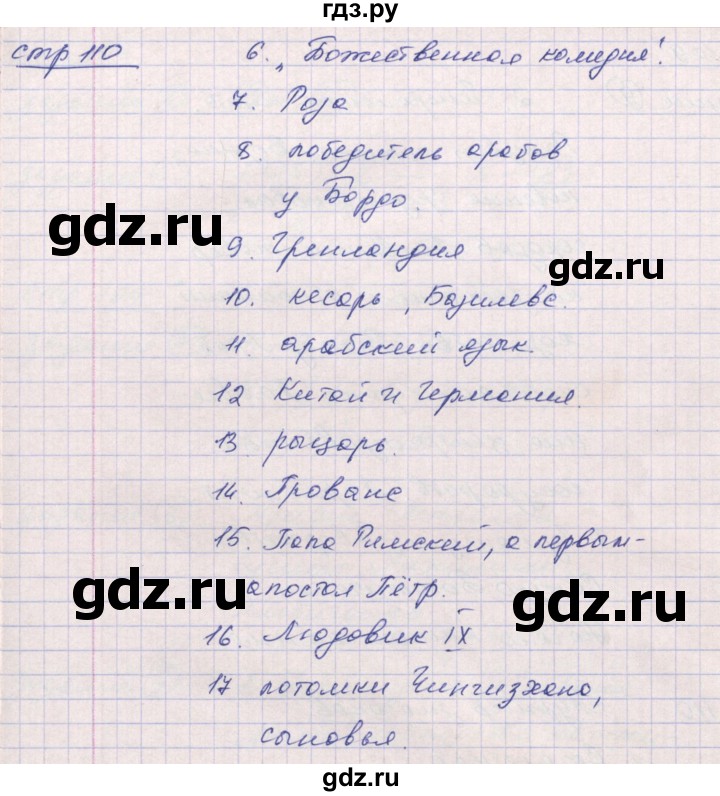 гдз.ру
стр 110
6. „Божественная комедия".
7. Роза
8. победитель арабов
у Бордо.
gdz.ru
9. Гренландия
gdz.ru
10. кесарь, Базилевс.
11. арабский язык.
12 Китай и Германия.
13 рыцарь.
14. Прованс
15. Папа Римский, а первым-
апостол Пётр.
gdz.ru
gdz.ru
16. Людовик IX
17 потомки Чингизхана,
сыновья.
gdz.ru